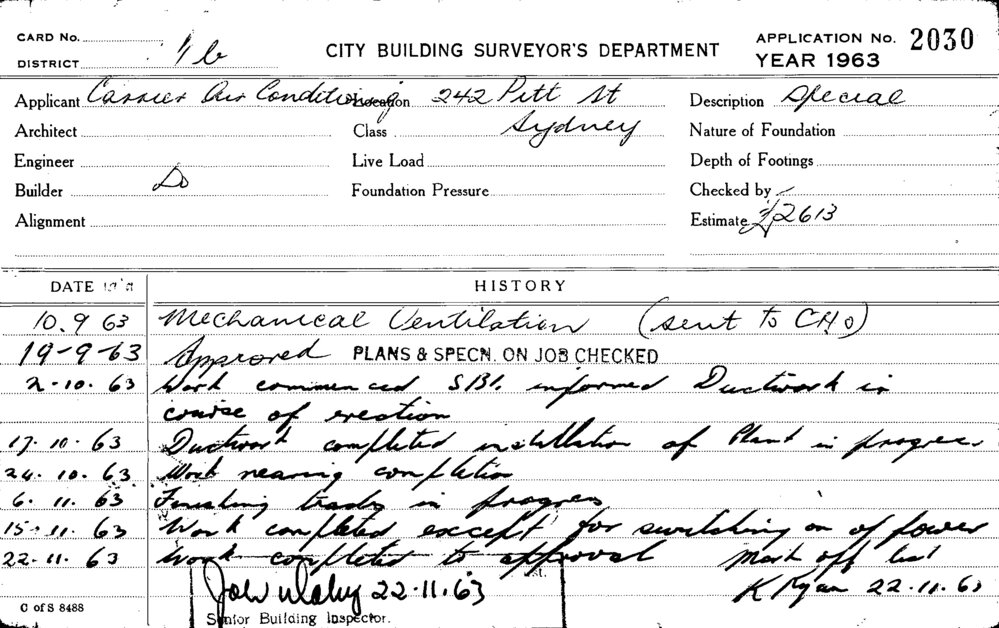 CARD No. CITY BUILDING SURVEYOR'S DEPARTMENT APPLICATION No. 2030
DISTRICT 1b YEAR 1963
Applicant Carrier Air Conditioning Location 242 Pitt St Description Special
Architect Class Sydney Nature of Foundation
Engineer Live Load Depth of Footings
Builder Do Foundation Pressure Checked by
Alignment Estimate £2613
DATE HISTORY
10.9 63 Mechanical Ventilation (sent to CHO)
19-9-63 Approved PLANS & SPECN. ON JOB CHECKED
2-10.63 Work commenced SBI. informed Ductwork in
course of erection
17.10.63 Ductwork completed installation of Plant in progress
24.10.63 Work nearing completion
6.11.63 Finishing trades in progress
15-11.63 Work completed except for switching on of power
22-11.63 Work completed to approval Mark off list
K Ryan 22.11.63
22.11.63
Senior Building Inspector.
C of S 8488